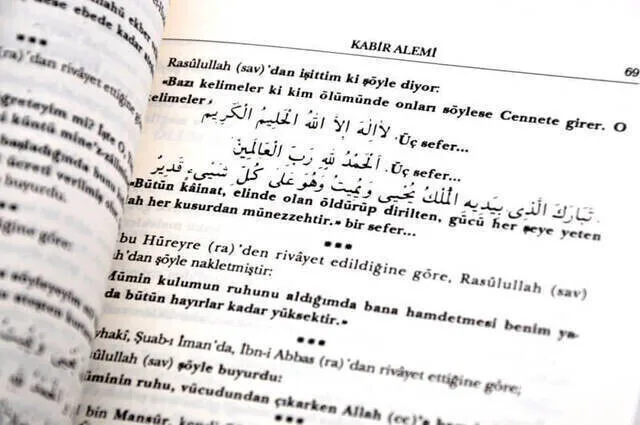 llahü ekber
ese ebede kadar
(ra)'dan rivayet ettiğine
greteyim mi? İşte O,
i küntü mine'z-zâli
başladığında bunları
ücreti verilmiş ol
buyurdu.
ettiğine göre:
söyleyeyim mi
ateşten kurtu
KABİR ALEMİ
69
Rasûlullah (sav)'dan işittim ki şöyle diyor:
«Bazı kelimeler ki kim ölümünde onları söylese Cennete girer. O
kelimeler
لَا اِلٰهَ اِلَّا اللّٰهُ الْحَلِيمُ الْكَرِيمُ .Üç sefer...
اَلْحَمْدُ لِلّٰهِ رَبِّ الْعَالَمِينَ .Üç sefer...
تَبَارَكَ الَّذِى بِيَدِيهِ الْمُلْكُ يُحْيِى وَيُمِيتُ وَهُوَ عَلَى كُلِّ شَيْىءٍ قَدِيرٌ .
«Bütün kâinat, elinde olan öldürüp dirilten, gücü her şeye yeten
lah her kusurdan münezzehtir.» bir sefer...
***
bu Hüreyre (ra)'den rivâyet edildiğine göre, Rasûlullah (sav)
h'dan şöyle nakletmiştir:
Mümin kulumun ruhunu aldığımda bana hamdetmesi benim ya-
da bütün hayırlar kadar yüksektir.»
***
yhakî, Şuab-ı İman'da, İbn-i Abbas (ra)'dan rivâyet ettiğine göre;
sûlullah (sav) şöyle buyurdu:
üminin ruhu, vücudundan çıkarken Allah (cc)'a
***
bin Mansûr, kendi